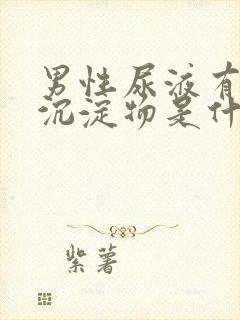 男性尿液有
沉淀物是什
紫薯